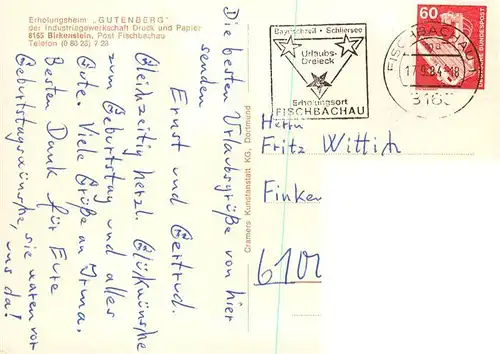 Erholungsheim „GUTENBERG"
der Industriegewerkschaft Druck und Papier
8165 Birkenstein, Post Fischbachau
Telefon (0 80 28) 7 23
Die besten Urlaubsgrüße von hier
senden
Ernst und Gertrud.
Gleichzeitig herzl. Glückwünsche
zum Geburtstag und alles
Gute. Viele Grüße an Irma.
Besten Dank für Eure
Geburtstagswünsche, sie waren vor
uns da!
Cramers Kunstanstalt KG, Dortmund
Bayrischzell · Schliersee
Urlaubs-
Dreieck
Erholungsort
FISCHBACHAU
FISCHBACHAU
17.9.84-18
8165
60
DEUTSCHE BUNDESPOST
Herrn
Fritz Wittich
Finken
6101